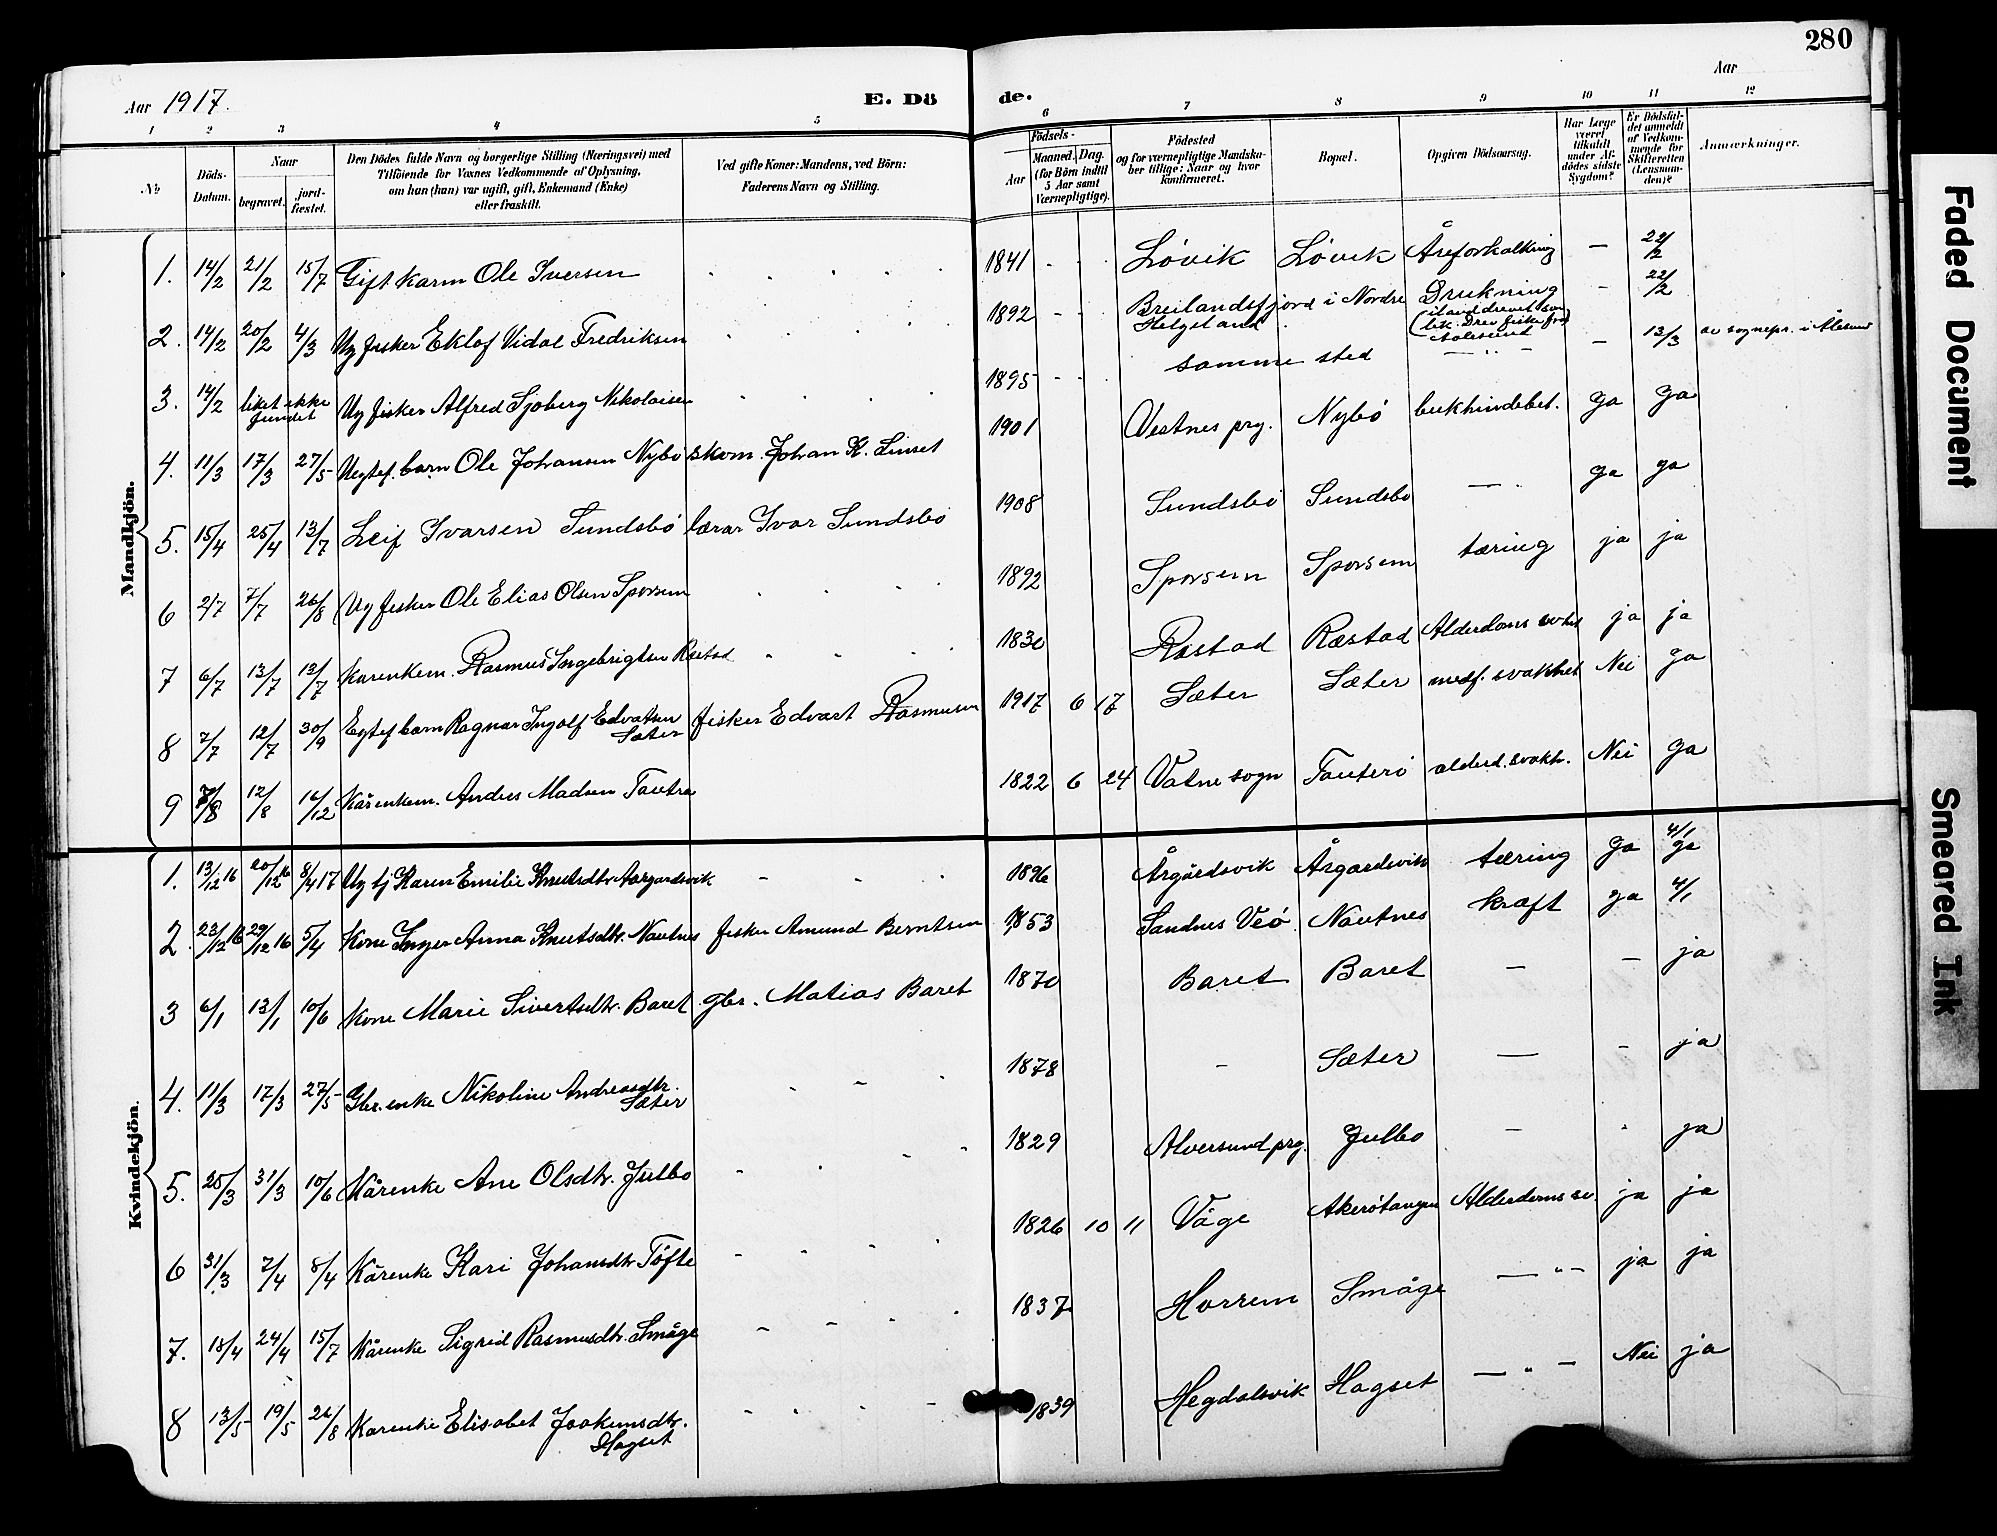 280
Aar 1917.
E. Dö de.
Aar
1 2 3 4 5 6 7 8 9 10 11 12
No
Döds-Datum.
Naar
begravet.
jord-fæstet.
Den Dödes fulde Navn og borgerlige Stilling (Næringsvei) med
Tilföiende for Voxnes Vedkommende af Oplysning,
om han (hun) var ugift, gift, Enkemand (Enke)
eller fraskilt.
Ved gifte Koner: Mandens, ved Börn:
Faderens Navn og Stilling.
Födsels-
Aar
Maaned. Dag.
(for Börn indtil
5 Aar samt
Værnepligtige).
Födested
og for værnepligtige Mandska-
ber tillige: Naar og hvor
konfirmeret.
Bopæl.
Opgiven Dödsaarsag.
Har Læge
været
tilkaldt
under Af-
dödes sidste
Sygdom?
Er Dödsfal-
det anmeldt
af Vedkom-
mende for
Skifteretten
(Lensman-
den)?
Anmærkninger.
Mandkjön.
1. 14/2 21/2 15/7 Gift karm Ole Iversen 1841 Lövik Lövik Åreforkalkning — 22/2
2. 14/2 20/2 4/3 Ug fisker Eklof Vidal Fredriksen 1892 Breilandsfjord i Nordre Helgeland Drukning - 22/2
3. 14/2 liket ikke fundet Ug fisker Alfred Sjoberg Nikolaisen 1895 samme sted — " — - 13/3 av sognepr. i Ålesund
4. 11/3 17/3 27/5 Uegtef. barn Ole Johansen Nybö skom. Johan K. Linset 1901 Vestnes prg. Nybö bukhindebet. ja ja
5. 15/4 25/4 13/7 Leif Ivarsen Sundsbö lærar Ivar Sundsbö 1908 Sundsbö Sundsbö — ja ja
6 2/7 7/7 26/8 Ug fisker Ole Elias Olsen Sporsem 1892 Sporsem Sporsem tæring ja ja
7 6/7 13/7 13/7 Kaarenkem. Rasmus Ingebrigtsen Ræstad 1830 Ræstad Ræstad Alderdoms svakh ja ja
8 7/7 12/7 30/9 Egtef barn Ragnar Ingolf Edvartsen Sæter fisker Edvart Rasmusen 1917 6 17 Sæter Sæter medf. svakhet Nei ja
9 7/8 12/8 16/12 Kårenkem. Andres Madsen Tautra 1822 6 24 Vatne sogn Tauterö alderd. svakh. Nei ja
Kvindekjön.
1. 13/12 16 20/12 16 8/4 17 Ug tj Karen Emilie Knutsdtr Aargardsvik 1896 Årgårdsvik Årgardsvik tæring ja 4/1 ja
2. 23/12 16 29/12 16 5/4 Kone Inger Anna Knutsdtr. Nautnes fisker Amund Berntsen 1853 Sandnes Veö Nautnes kræft ja 4/1
3 6/1 13/1 10/6 Kone Marie Sivertsdtr. Baret gbr. Matias Baret 1870 Baret Baret — - ja
4. 11/3 17/3 27/5 Gbr. enke Nikoline Andreasdtr. Sæter 1878 - Sæter — - ja
5. 25/3 31/3 10/6 Kårenke Ane Olsdtr. Julbö 1829 Alversund prg. Julbö - ja
6 31/3 7/4 8/4 Kårenke Kari Johansdtr Töfte 1826 10 11 Våge Akerötangen Alderdoms sv. ja ja
7. 18/4 24/4 15/7 Kårenke Sigrid Rasmusdtr. Småge 1837 Harrem Småge — " — ja ja
8 13/5 19/5 26/8 Kårenke Elisabet Joakimsdtr. Hagset 1839 Hegdalsvik Hagset — " — Nei ja
Faded Document
Smeared Ink